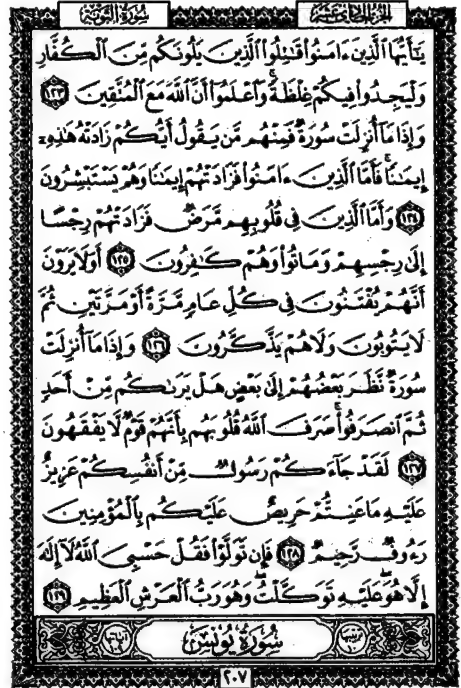 الجزء الحادي عشر
سُورَةُ التَّوْبَةِ
يَٰٓأَيُّهَا ٱلَّذِينَ ءَامَنُوا۟ قَٰتِلُوا۟ ٱلَّذِينَ يَلُونَكُم مِّنَ ٱلْكُفَّارِ
وَلْيَجِدُوا۟ فِيكُمْ غِلْظَةً ۚ وَٱعْلَمُوٓا۟ أَنَّ ٱللَّهَ مَعَ ٱلْمُتَّقِينَ ١٢٣
وَإِذَا مَآ أُنزِلَتْ سُورَةٌ فَمِنْهُم مَّن يَقُولُ أَيُّكُمْ زَادَتْهُ هَٰذِهِۦٓ
إِيمَٰنًا ۚ فَأَمَّا ٱلَّذِينَ ءَامَنُوا۟ فَزَادَتْهُمْ إِيمَٰنًا وَهُمْ يَسْتَبْشِرُونَ
١٢٤ وَأَمَّا ٱلَّذِينَ فِى قُلُوبِهِم مَّرَضٌ فَزَادَتْهُمْ رِجْسًا
إِلَىٰ رِجْسِهِمْ وَمَاتُوا۟ وَهُمْ كَٰفِرُونَ ١٢٥ أَوَلَا يَرَوْنَ
أَنَّهُمْ يُفْتَنُونَ فِى كُلِّ عَامٍ مَّرَّةً أَوْ مَرَّتَيْنِ ثُمَّ
لَا يَتُوبُونَ وَلَا هُمْ يَذَّكَّرُونَ ١٢٦ وَإِذَا مَآ أُنزِلَتْ
سُورَةٌ نَّظَرَ بَعْضُهُمْ إِلَىٰ بَعْضٍ هَلْ يَرَىٰكُم مِّنْ أَحَدٍ
ثُمَّ ٱنصَرَفُوا۟ ۚ صَرَفَ ٱللَّهُ قُلُوبَهُم بِأَنَّهُمْ قَوْمٌ لَّا يَفْقَهُونَ
١٢٧ لَقَدْ جَآءَكُمْ رَسُولٌ مِّنْ أَنفُسِكُمْ عَزِيزٌ
عَلَيْهِ مَا عَنِتُّمْ حَرِيصٌ عَلَيْكُم بِٱلْمُؤْمِنِينَ
رَءُوفٌ رَّحِيمٌ ١٢٨ فَإِن تَوَلَّوْا۟ فَقُلْ حَسْبِىَ ٱللَّهُ لَآ إِلَٰهَ
إِلَّا هُوَ ۖ عَلَيْهِ تَوَكَّلْتُ ۖ وَهُوَ رَبُّ ٱلْعَرْشِ ٱلْعَظِيمِ ١٢٩
ترتيبها ١٠
سُورَةُ يُونُسَ
آياتها ١٠٩
٢٠٧